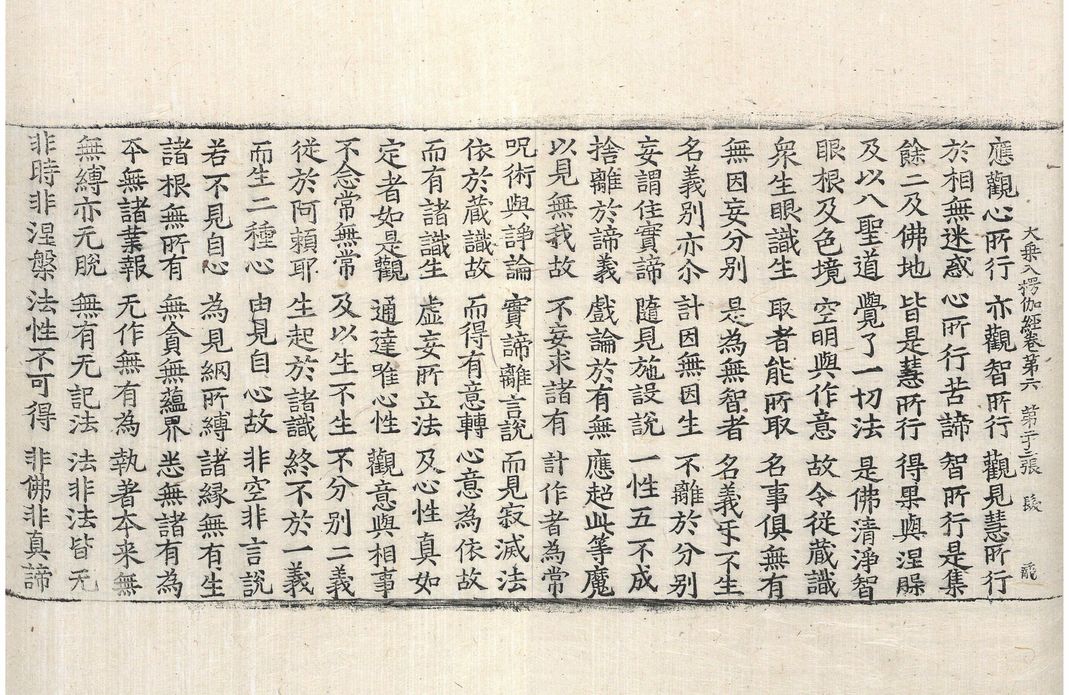 大乗入楞伽經卷第六　第十三張
應觀心所行　亦觀智所行　觀見慧所行
於相無迷惑　心所行苦諦　智所行是集
餘二及佛地　皆是慧所行　得果與涅槃
及以八聖道　覺了一切法　是佛清淨智
眼根及色境　空明與作意　故令從藏識
衆生眼識生　取者能所取　名事俱無有
無因妄分別　是為無智者　名義互不生
名義别亦尒　計因無因生　不離於分別
妄謂住實諦　隨見施設說　一性五不成
捨離於諦義　戲論於有無　應超此等魔
以見無我故　不妄求諸有　計作者為常
呪術與諍論　實諦離言說　而見寂滅法
依於藏識故　而得有意轉　心意為依故
而有諸識生　虛妄所立法　及心性真如
定者如是觀　通達唯心性　觀意與相事
不念常無常　及以生不生　不分别二義
從於阿頼耶　生起於諸識　終不於一義
而生二種心　由見自心故　非空非言說
若不見自心　為見網所縛　諸緣無有生
諸根無所有　無貪無蘊界　悉無諸有為
夲無諸業報　无作無有為　執著夲来無
無縛亦无脫　無有无記法　法非法皆无
非時非涅槃　法性不可得　非佛非真諦